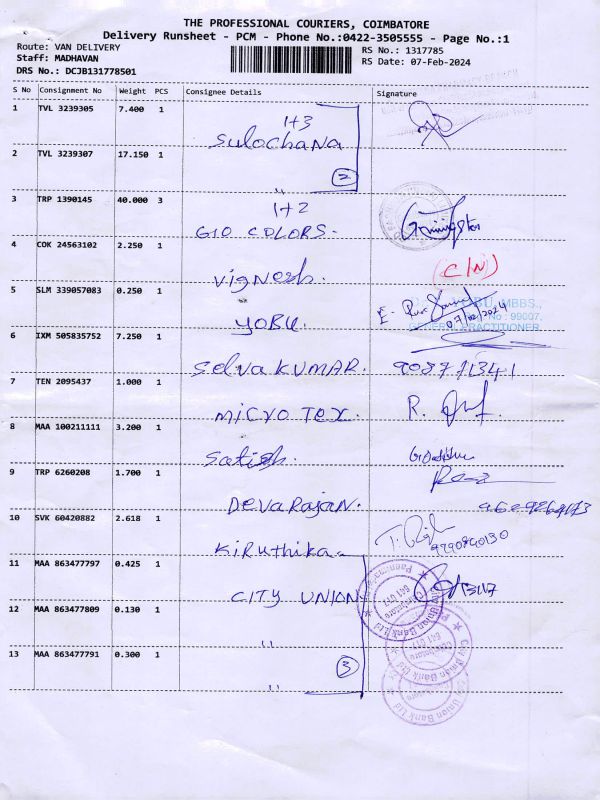 THE PROFESSIONAL COURIERS, COIMBATORE
Delivery Runsheet - PCM - Phone No.:0422-3505555 - Page No.:1
Route: VAN DELIVERY
Staff: MADHAVAN
DRS No.: DCJB131778501
RS No.: 1317785
RS Date: 07-Feb-2024
S No Consignment No Weight PCS Consignee Details Signature
1 TVL 3239305 7.400 1
1+3
Sulochana
2 TVL 3239307 17.150 1
" 2
3 TRP 1390145 40.000 3
1+2
GIO COLORS.
4 COK 24563102 2.250 1
Vignesh. (C/N)
5 SLM 339057083 0.250 1
YOBU. 07/02/2024
MBBS.,
No : 99007,
GENERAL PRACTITIONER.
6 IXM 505835752 7.250 1
SELVA KUMAR.
7 TEN 2095437 1.000 1
MICRO TEX. R.
8 MAA 100211111 3.200 1
Satish.
9 TRP 6260208 1.700 1
DEVARAJAN.
10 SVK 60420882 2.618 1
KIRUTHIKA
11 MAA 863477797 0.425 1
CITY UNION
12 MAA 863477809 0.130 1
"
13 MAA 863477791 0.300 1
" 3
City Union Bank Ltd
Coimbatore
641 017
City Union Bank Ltd
Coimbatore
641 017
City Union Bank Ltd